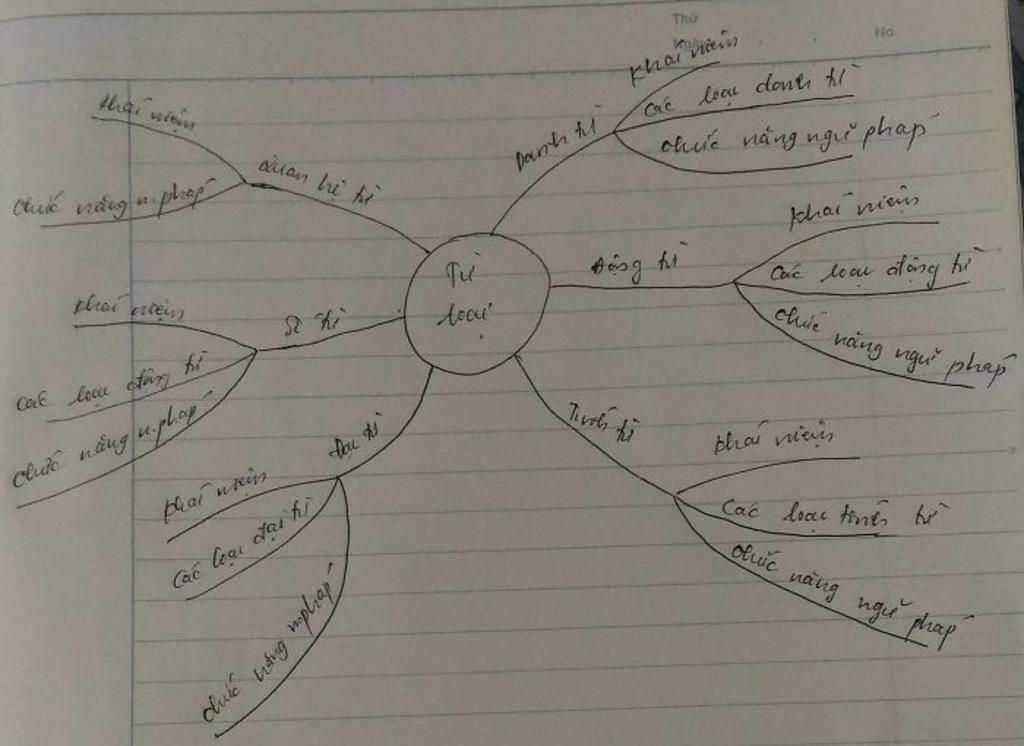 Thứ
No
Từ
loại
Danh từ
Khái niệm
Các loại danh từ
Chức năng ngữ pháp
Động từ
Khái niệm
Các loại động từ
Chức năng ngữ pháp
Tính từ
Khái niệm
Các loại tính từ
Chức năng ngữ pháp
Đại từ
Khái niệm
Các loại đại từ
Chức năng n.pháp
Số từ
Khái niệm
Các loại động từ
Chức năng n.pháp
Quan hệ từ
Khái niệm
Chức năng n.pháp